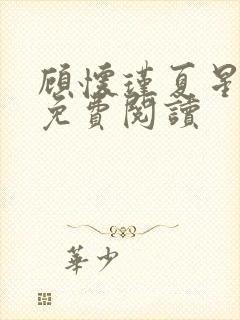 顾懷瑾夏星
免費閱讀
華少